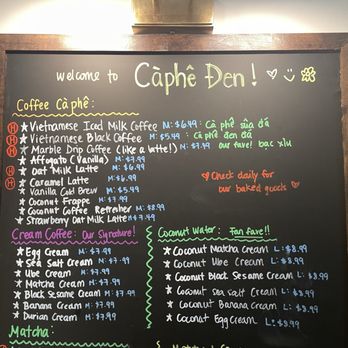 welcome to Càphê Đen!
Coffee Cà phê:
H ★ Vietnamese Iced Milk Coffee M: $6.49 : cà phê sữa đá
H ★ Vietnamese Black Coffee M: $5.49 : cà phê đen đá
H ★ Marble Drip Coffee (like a latte!) M: $7.49 our fave! bạc xỉu
★ Affogato (Vanilla) M: $7.99
H ★ Oat Milk Latte M: $6.99
H ★ Caramel Latte M: $6.99
★ Vanilla Cold Brew M: $5.99
★ Coconut Frappe M: $7.99
★ Coconut Coffee Refresher M: $8.99
★ Strawberry Oat Milk Latte M: $7.49
Check daily for
our baked goods ♥
Cream Coffee: Our Signature!
★ Egg Cream M: $7.99
★ Sea Salt Cream M: $7.99
★ Ube Cream M: $7.99
★ Matcha Cream M: $7.99
★ Black Sesame Cream M: $7.99
★ Banana Cream M: $7.99
★ Durian Cream M: $7.99
Coconut Water: Fan fave!!
★ Coconut Matcha Cream L: $8.99
★ Coconut Ube Cream L: $8.99
★ Coconut Black Sesame Cream L: $8.99
★ Coconut Sea Salt Cream L: $8.99
★ Coconut Banana Cream L: $8.99
★ Coconut Egg Cream L: $8.99
Matcha: